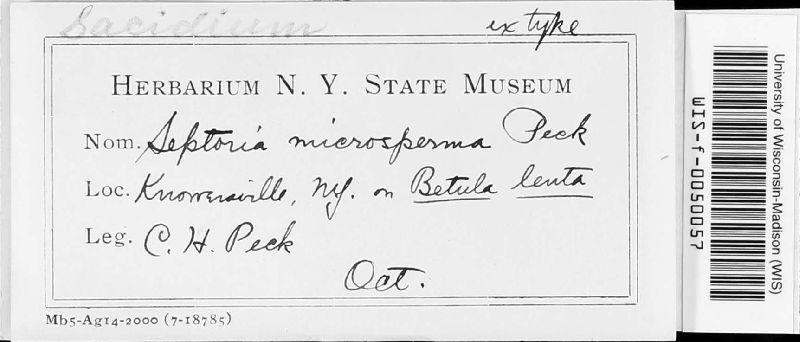 Sacidium
ex type
HERBARIUM N. Y. STATE MUSEUM
Nom. Septoria microsperma Peck
Loc. Knowersville, NY. on Betula lenta
Leg. C. H. Peck
Oct.
Mb5-Ag14-2000 (7-18785)
University of Wisconsin-Madison (WIS)
WIS-f-0050057